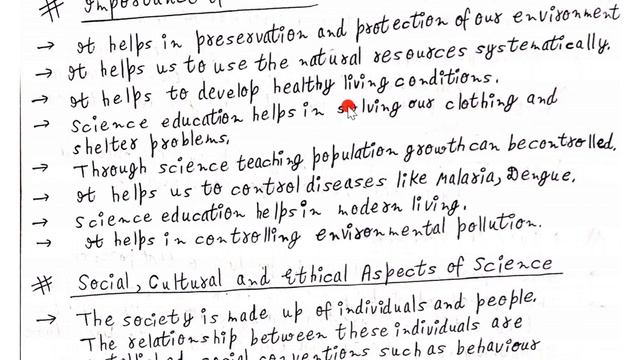 # Importance of
→ It helps in preservation and protection of our environment
→ It helps us to use the natural resources systematically.
→ It helps to develop healthy living conditions.
→ Science education helps in solving our clothing and
shelter problems.
→ Through science teaching population growth can be controlled.
→ It helps us to control diseases like Malaria, Dengue.
→ Science education helps in modern living.
→ It helps in controlling environmental pollution.
# Social, Cultural and Ethical Aspects of Science
→ The society is made up of individuals and people.
The relationship between these individuals are
social conventions such as behaviour